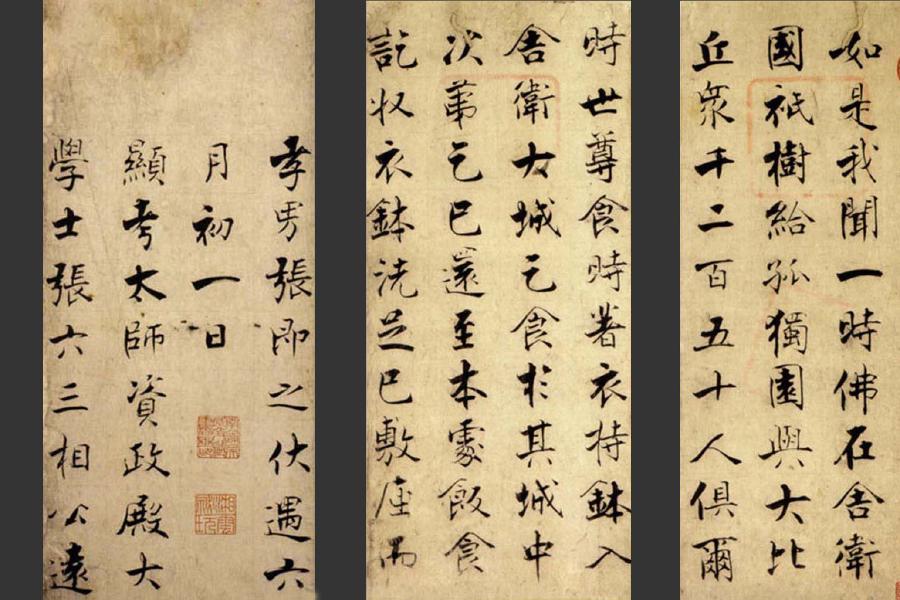 如是我聞一時佛在舍衛
國祇樹給孤獨園與大比
丘衆千二百五十人俱爾
時世尊食時著衣持鉢入
舍衛大城乞食於其城中
次第乞已還至本處飯食
訖收衣鉢洗足已敷座而
孝男張即之伏遇六
月初一日
顯考太師資政殿大
學士張六三相公遠